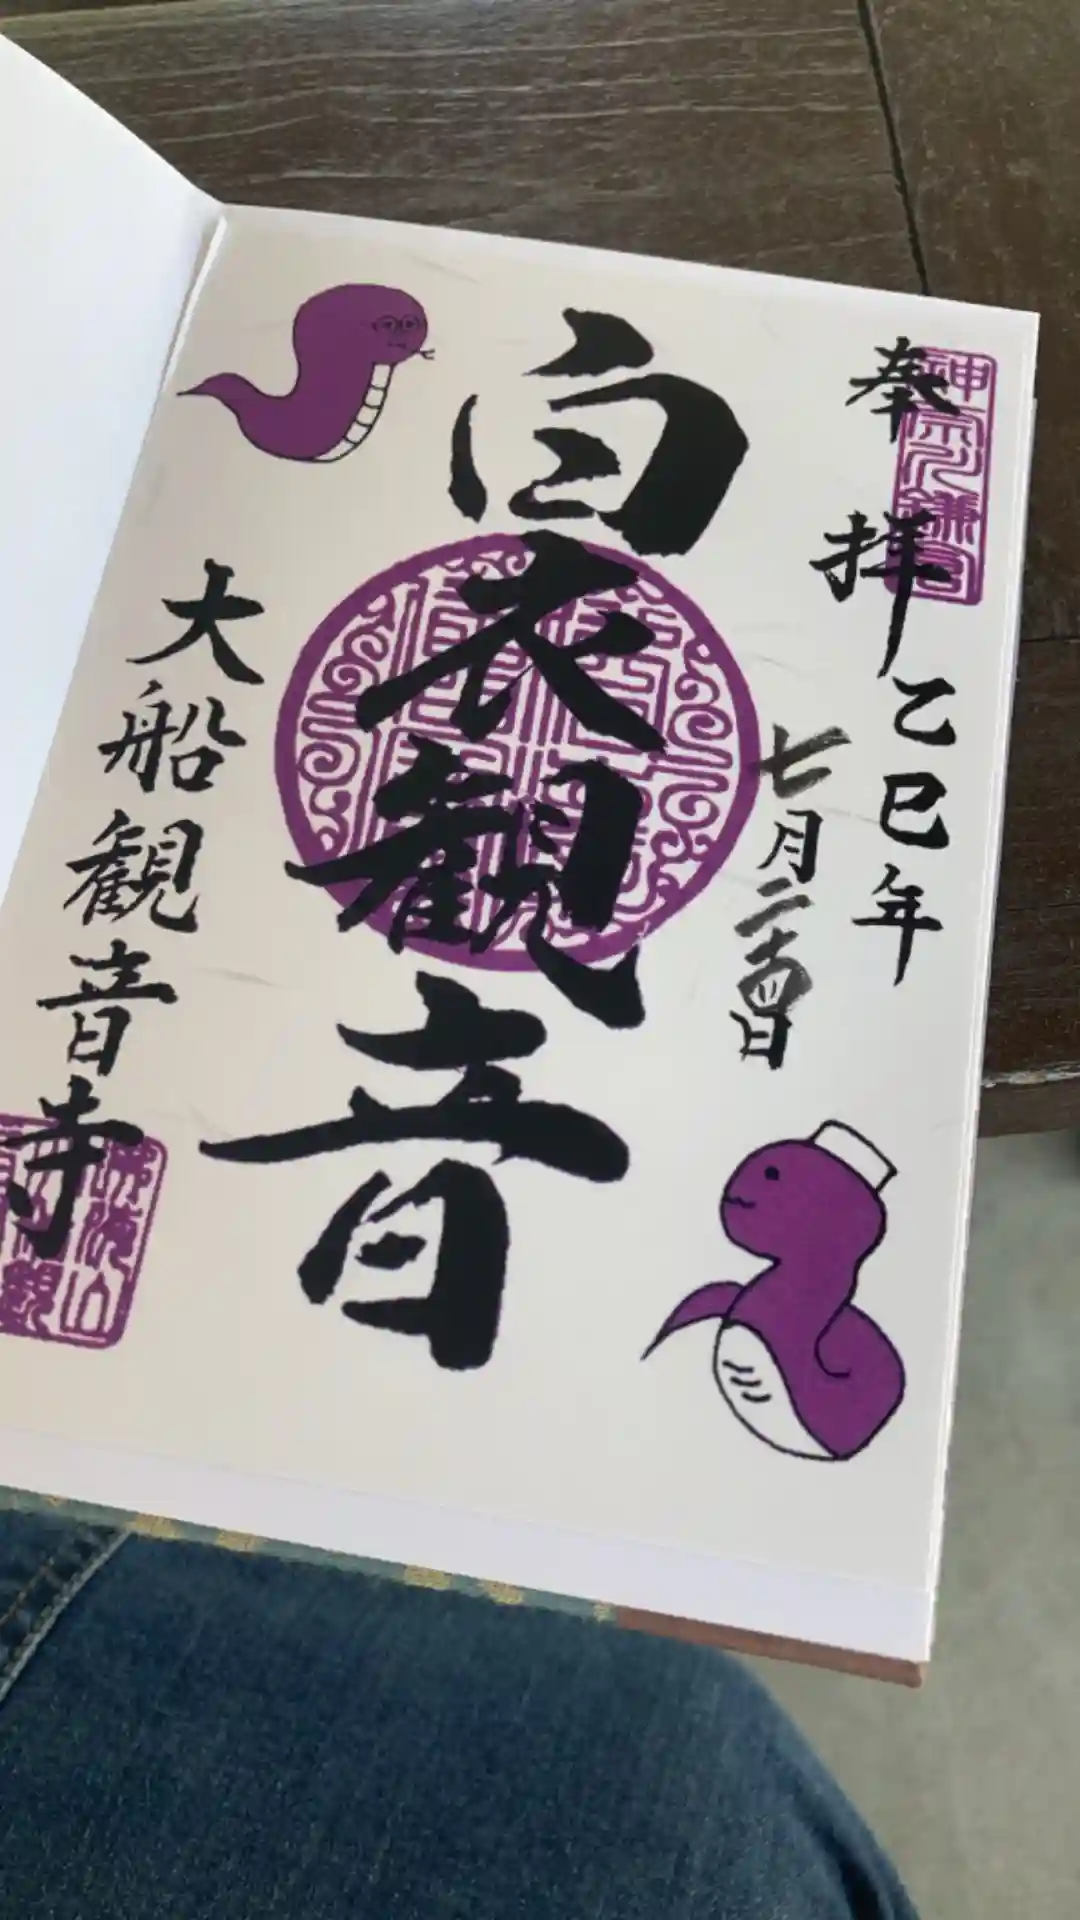 奉拝
乙巳年
七月二十四日
白衣観音
大船観音寺